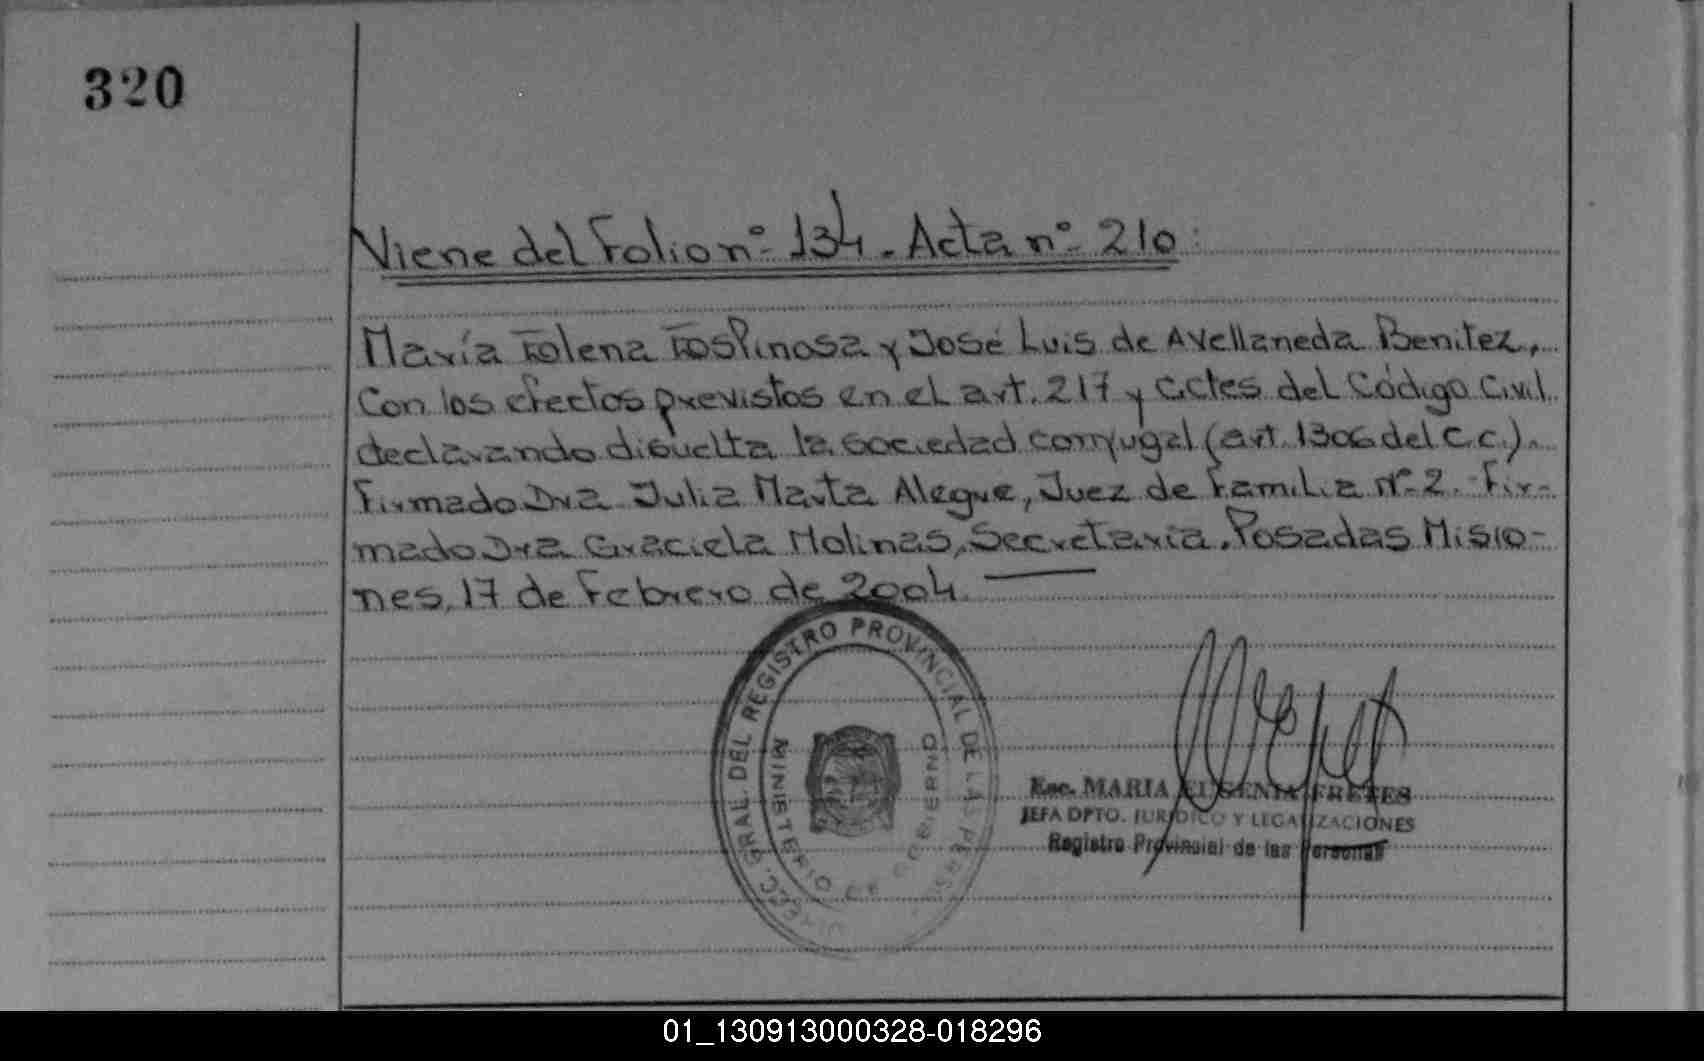 320
Viene del Folio nº 134. Acta nº 210:
María Elena Espinosa y José Luis de Avellaneda Benitez,
con los efectos previstos en el art. 217 y cctes del Código Civil
declarando disuelta la sociedad conyugal (art. 1306 del C.C.).
Firmado Dra Julia Marta Alegre, Juez de Familia Nº 2. Fir-
mado Dra Graciela Molinas, Secretaria. Posadas Misio-
nes, 17 de Febrero de 2004.
DIRECC. GRAL. DEL REGISTRO PROVINCIAL DE LAS PERS.
MINISTERIO DE GOBIERNO
Esc. MARIA EUGENIA FRETES
JEFA DPTO. JURIDICO Y LEGALIZACIONES
Registro Provincial de las Personas
01_130913000328-018296